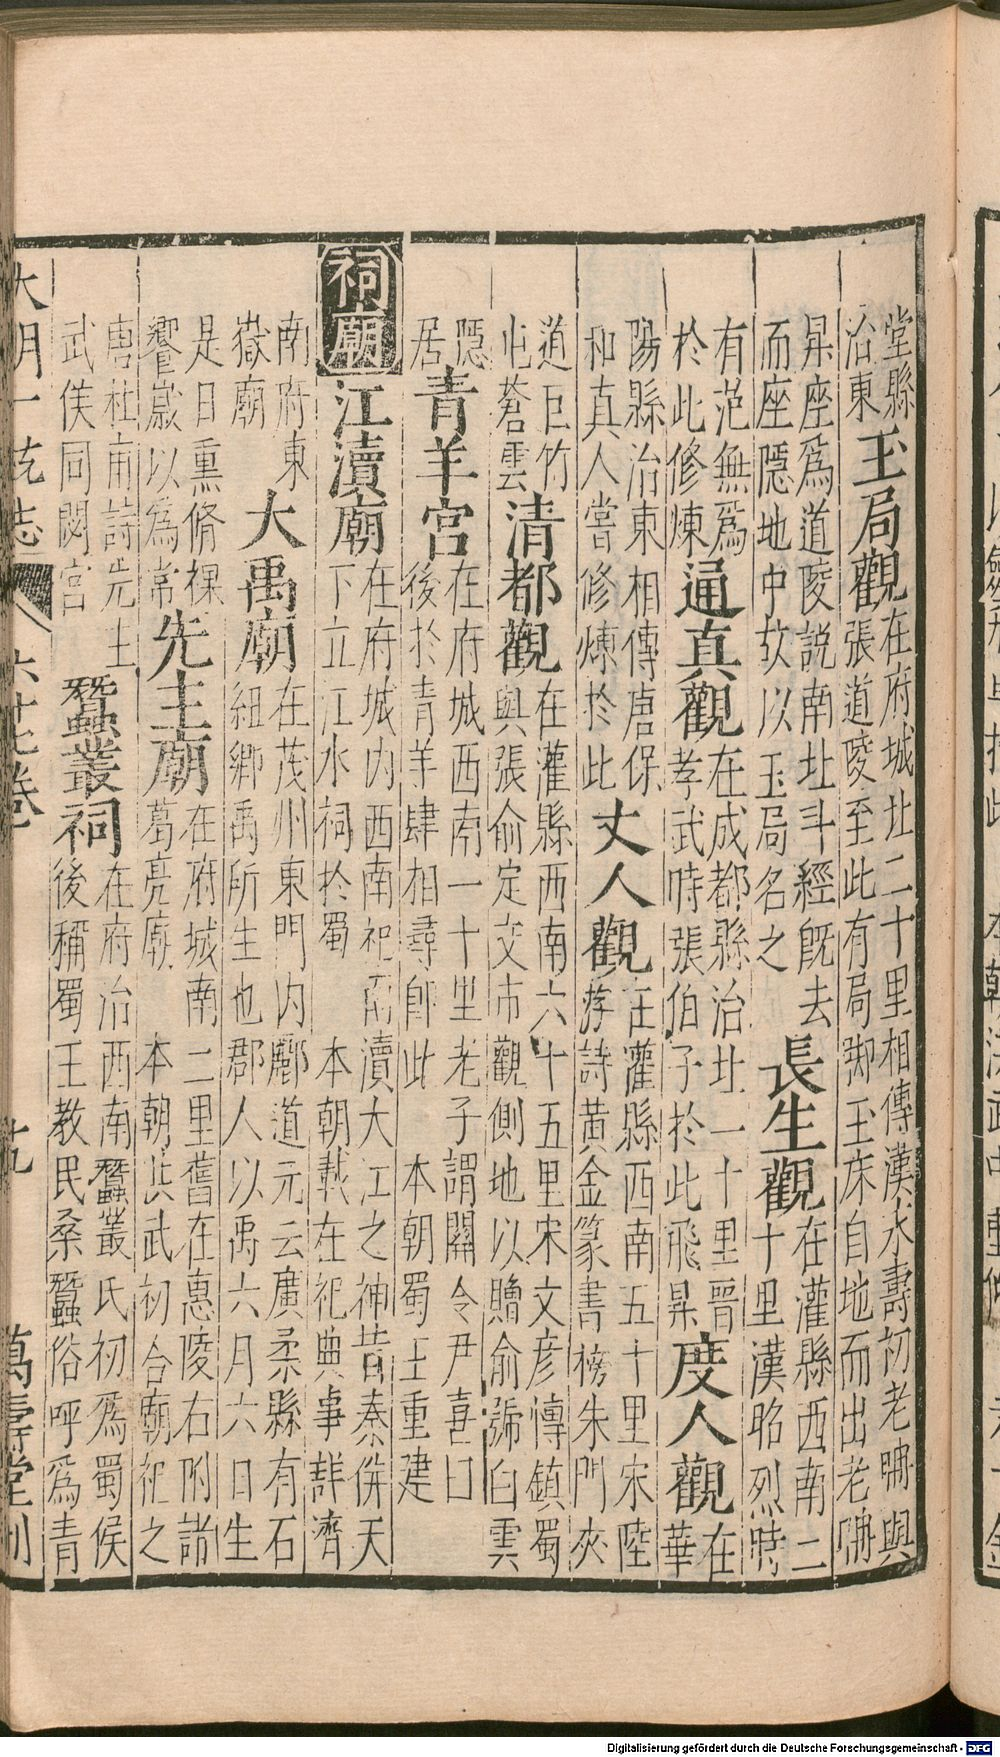 堂縣治東玉局觀在府城北二十里相傳漢永壽初老聃與
張道陵至此有局腳玉床自地而出老聃
昇座爲道陵說南北斗經既去
而座隱地中故以玉局名之長生觀在灌縣西南二
十里漢昭烈時
有范無爲
於此修煉通真觀在成都縣治北一十里晉
孝武時張伯子於此飛昇度人觀在
華
陽縣治東相傳唐保
和真人嘗修煉於此丈人觀在灌縣西南五十里宋陸
游詩黃金篆書榜朱門夾
道巨竹
屯蒼雲清都觀在灌縣西南六十五里宋文彦博鎮蜀
與張俞定交市觀側地以贈俞號白雲
隱
居青羊宮在府城西南一十里老子謂關令尹喜曰
後於青羊肆相尋卽此 本朝蜀王重建
祠廟江瀆廟在府城內西南祀南瀆大江之神昔秦併天
下立江水祠於蜀 本朝載在祀典事詳濟
南府東
嶽廟大禹廟在茂州東門內酈道元云廣柔縣有石
紐鄉禹所生也郡人以禹六月六日生
是日熏脩祼
饗歲以爲常先主廟在府城南二里舊在惠陵右附諸
葛亮廟 本朝洪武初合廟祀之
唐杜甫詩先主
武侯同閟宮蠶叢祠在府治西南蠶叢氏初爲蜀侯
後稱蜀王教民桑蠶俗呼爲青
大明一統志 六十七卷 十九 萬壽堂刊
Digitalisierung gefördert durch die Deutsche Forschungsgemeinschaft - DFG